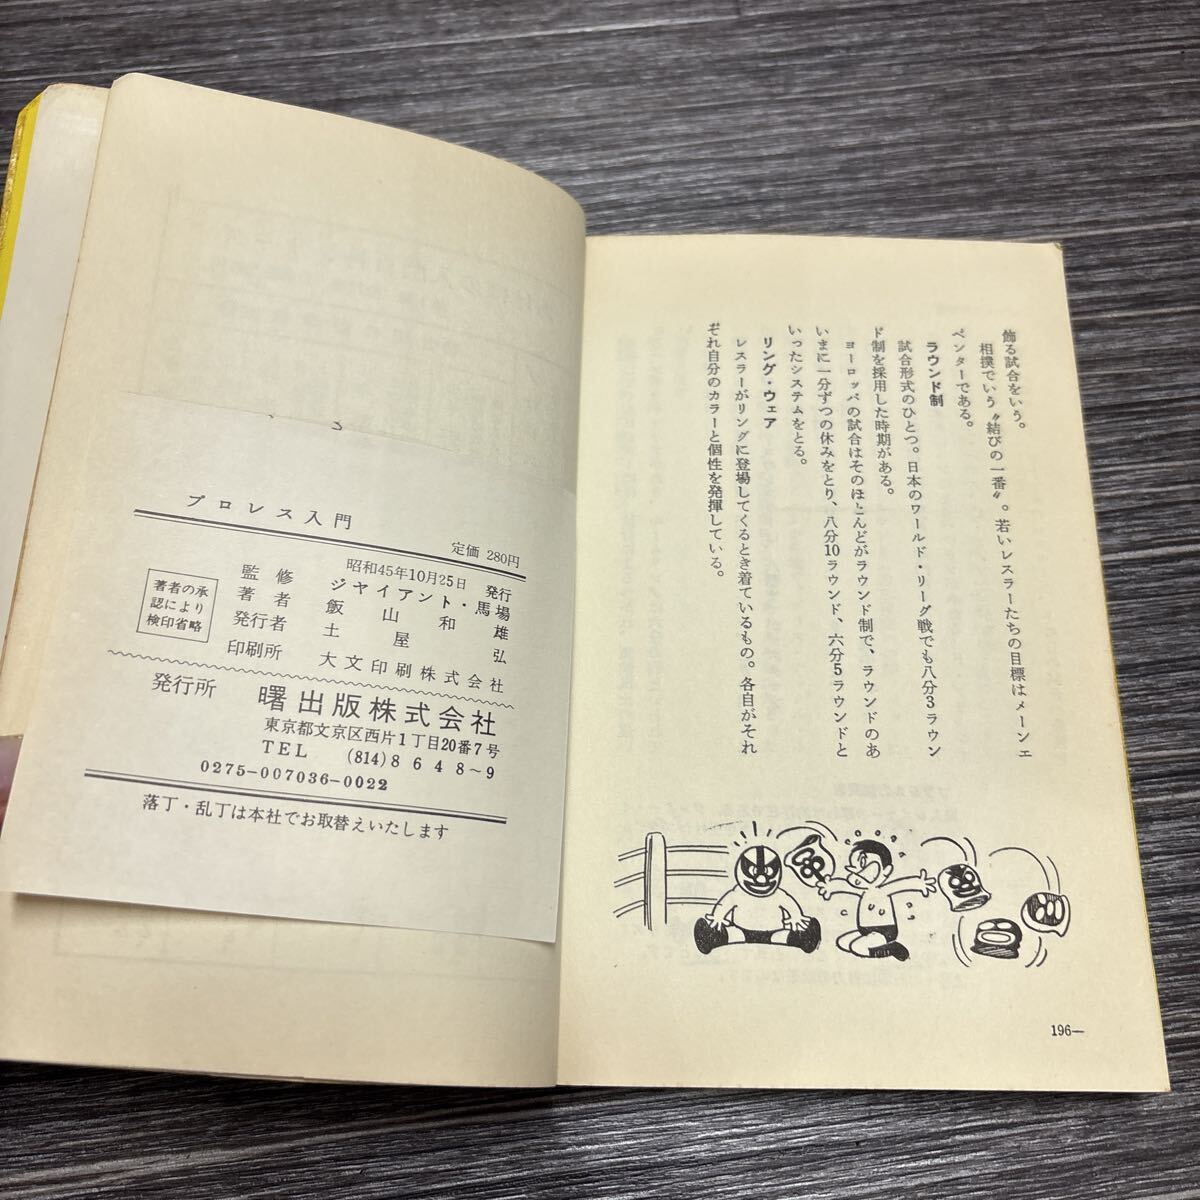 飾る試合をいう。
相撲でいう〝結びの一番〟。若いレスラーたちの目標はメーンエ
ベンターである。
ラウンド制
試合形式のひとつ。日本のワールド・リーグ戦でも八分3ラウン
ド制を採用した時期がある。
ヨーロッパの試合はそのほとんどがラウンド制で、ラウンドのあ
いまに一分ずつの休みをとり、八分10ラウンド、六分5ラウンドと
いったシステムをとる。
リング・ウェア
レスラーがリングに登場してくるとき着ているもの。各自がそれ
ぞれ自分のカラーと個性を発揮している。
196—
プロレス入門
定価 280円
昭和45年10月25日 発行
監修 ジャイアント・馬場
著者 飯山和雄
発行者 土屋弘
印刷所 大文印刷株式会社
著者の承
認により
検印省略
発行所 曙出版株式会社
東京都文京区西片1丁目20番7号
TEL (814)8648~9
0275-007036-0022
落丁・乱丁は本社でお取替えいたします